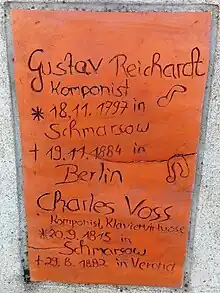 Gustav Reichardt
Komponist
* 18.11.1797 in
Schmarsow
† 19.11.1884 in
Berlin
Charles Voss
Komponist, Klaviervirtuose
* 20.9.1815 in
Schmarsow
† 29.8.1882 in Verona